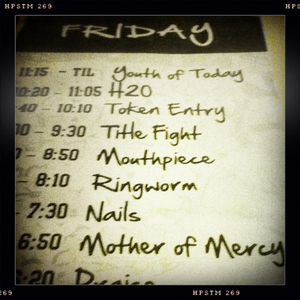 HPSTM 269
HPSTM 269
FRIDAY
11:15 - TIL Youth of Today
10:20 - 11:05 H2O
:40 - 10:10 Token Entry
00 - 9:30 Title Fight
- 8:50 Mouthpiece
- 8:10 Ringworm
- 7:30 Nails
6:50 Mother of Mercy
:20 Praise
269
HPSTM 269